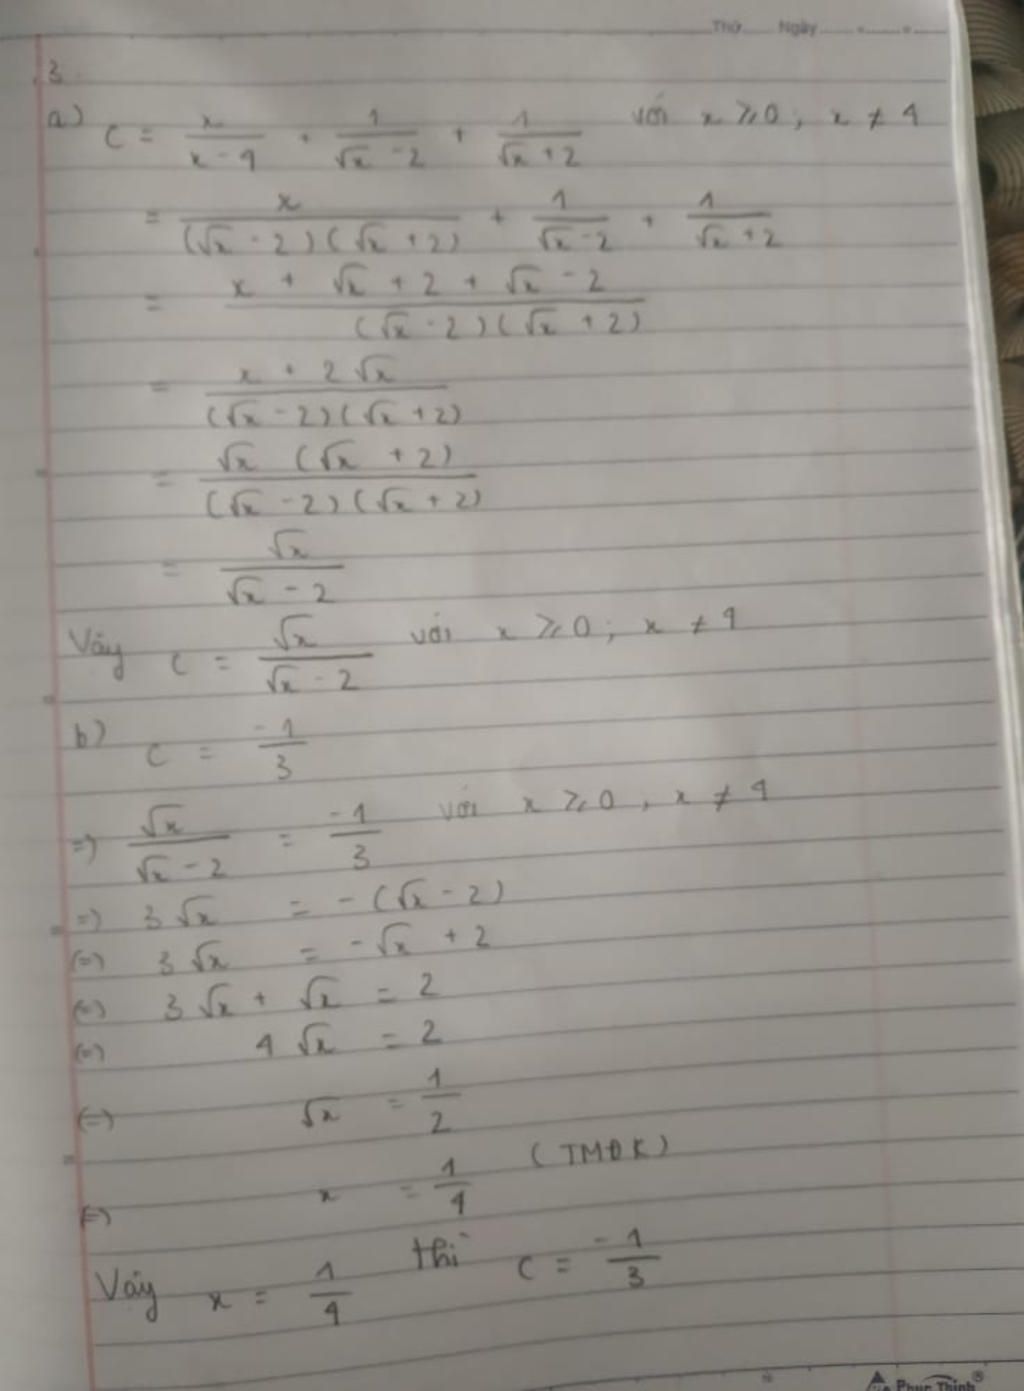 Thứ Ngày
3.
a) C = x/(x-4) + 1/(√x - 2) + 1/(√x + 2) với x ⩾ 0 ; x ≠ 4
= x/((√x - 2)(√x + 2)) + 1/(√x - 2) + 1/(√x + 2)
= (x + √x + 2 + √x - 2)/((√x - 2)(√x + 2))
= (x + 2√x)/((√x - 2)(√x + 2))
= (√x (√x + 2))/((√x - 2)(√x + 2))
= √x/(√x - 2)
Vậy C = √x/(√x - 2) với x ⩾ 0 ; x ≠ 4
b) C = -1/3
=> √x/(√x - 2) = -1/3 với x ⩾ 0 , x ≠ 4
=> 3√x = - (√x - 2)
(=) 3√x = - √x + 2
(=) 3√x + √x = 2
(=) 4√x = 2
(=) √x = 1/2
(=) x = 1/4 (TMĐK)
Vậy x = 1/4 thì C = -1/3
Phuc Thinh®